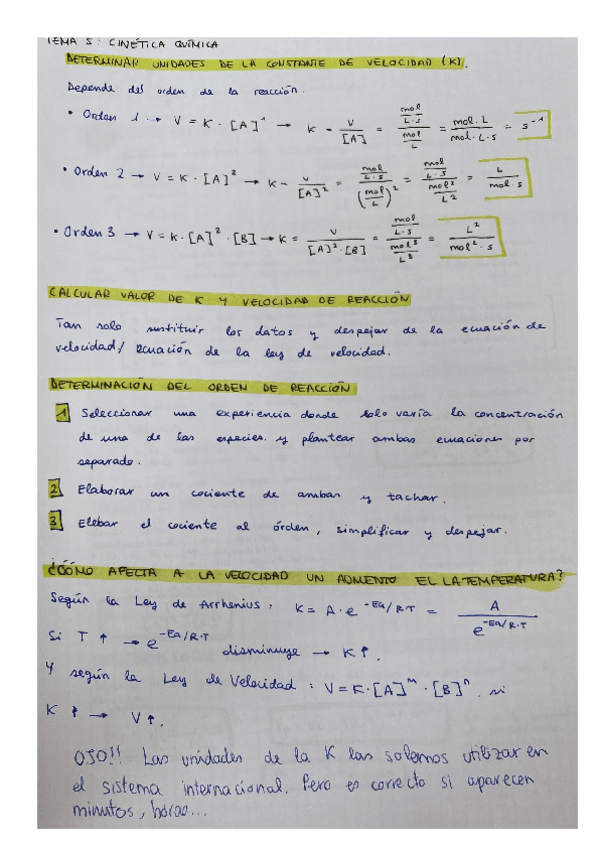 TEMA 5: CINÉTICA QUÍMICA
DETERMINAR UNIDADES DE LA CONSTANTE DE VELOCIDAD (K).
Depende del orden de la reacción.
• Orden 1 → V = K · [A]¹ → K = V/[A] = (mol/L·s)/(mol/L) = mol·L/mol·L·s = s⁻¹
• Orden 2 → V = K · [A]² → K = V/[A]² = (mol/L·s)/(mol/L)² = (mol/L·s)/(mol²/L²) = L/mol·s
• Orden 3 → V = K · [A]² · [B] → K = V/[A]²·[B] = (mol/L·s)/(mol³/L³) = L²/mol²·s
CALCULAR VALOR DE K Y VELOCIDAD DE REACCIÓN
Tan solo sustituir los datos y despejar de la ecuación de
velocidad/ ecuación de la ley de velocidad.
DETERMINACIÓN DEL ORDEN DE REACCIÓN
1 Seleccionar una experiencia donde solo varía la concentración
de una de las especies y plantear ambas ecuaciones por
separado.
2 Elaborar un cociente de ambas y tachar.
3 Elebar el cociente al órden, simplificar y despejar.
¿CÓOMO AFECTA A LA VELOCIDAD UN AUMENTO EL LA TEMPERATURA?
Según la Ley de Arrhenius, K = A·e^-Ea/R·T = A/e^-Ea/R·T
Si T ↑ → e^-Ea/R·T disminuye → K↑.
Y según la Ley de Velocidad: V = K·[A]ᵐ·[B]ⁿ, si
K ↑ → V↑.
OJO!! Las unidades de la K las solemos utilizar en
el sistema internacional. Pero es correcto si aparecen
minutos, horas...